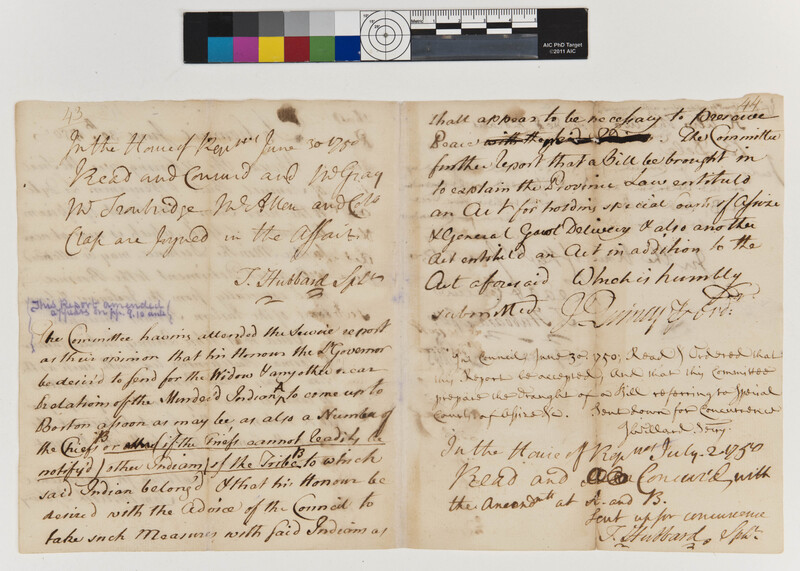 AIC PhD Target
©2011 AIC
43
In the House of Rep.ves June 30 1750
Read and Concurd and Mr Gray
Mr Trowbridge Mr Allen and Col.
Clap are Joyned in the Affair.
T. Hubbard Spkr.
This Report amended
appears on pp. 9, 10 ante
The Committee having attended the Service report
as their opinion that his Honour the Lt Governor
be desir'd to send for the Widow & any other near
A
Relations of the Murder'd Indian, to come up to
Boston as soon as may be, as also a Number of
the Chiefs B or if the Chiefs cannot readily be
notify'd other Indians of the Tribe B to which
said Indian belong'd & that his Honour be
desired with the Advice of the Council to
take such Measures with said Indians as
44
shall appear to be necessary to preserve
Peace with the said. The Committee
further Report that a Bill be brought in
to explain the Province Law entituled
an Act for holding special Courts of Assize
& General Goal Delivery & also another
Act entituled an Act in addition to the
Act aforesaid Which is humbly
submitted J. Quincy Ordr.
In Council June 30, 1750; Read & Ordered that
this Report be accepted, And that this Committee
prepare the Draught of a Bill referring to Special
Courts of Assize &c. Sent down for Concurrence
J Willard Secry.
In the House of Rep.ves July 2. 1750
Read and Concur'd, with
the Amendmts at A. and B.
Sent up for concurrence
T. Hubbard, Spkr.